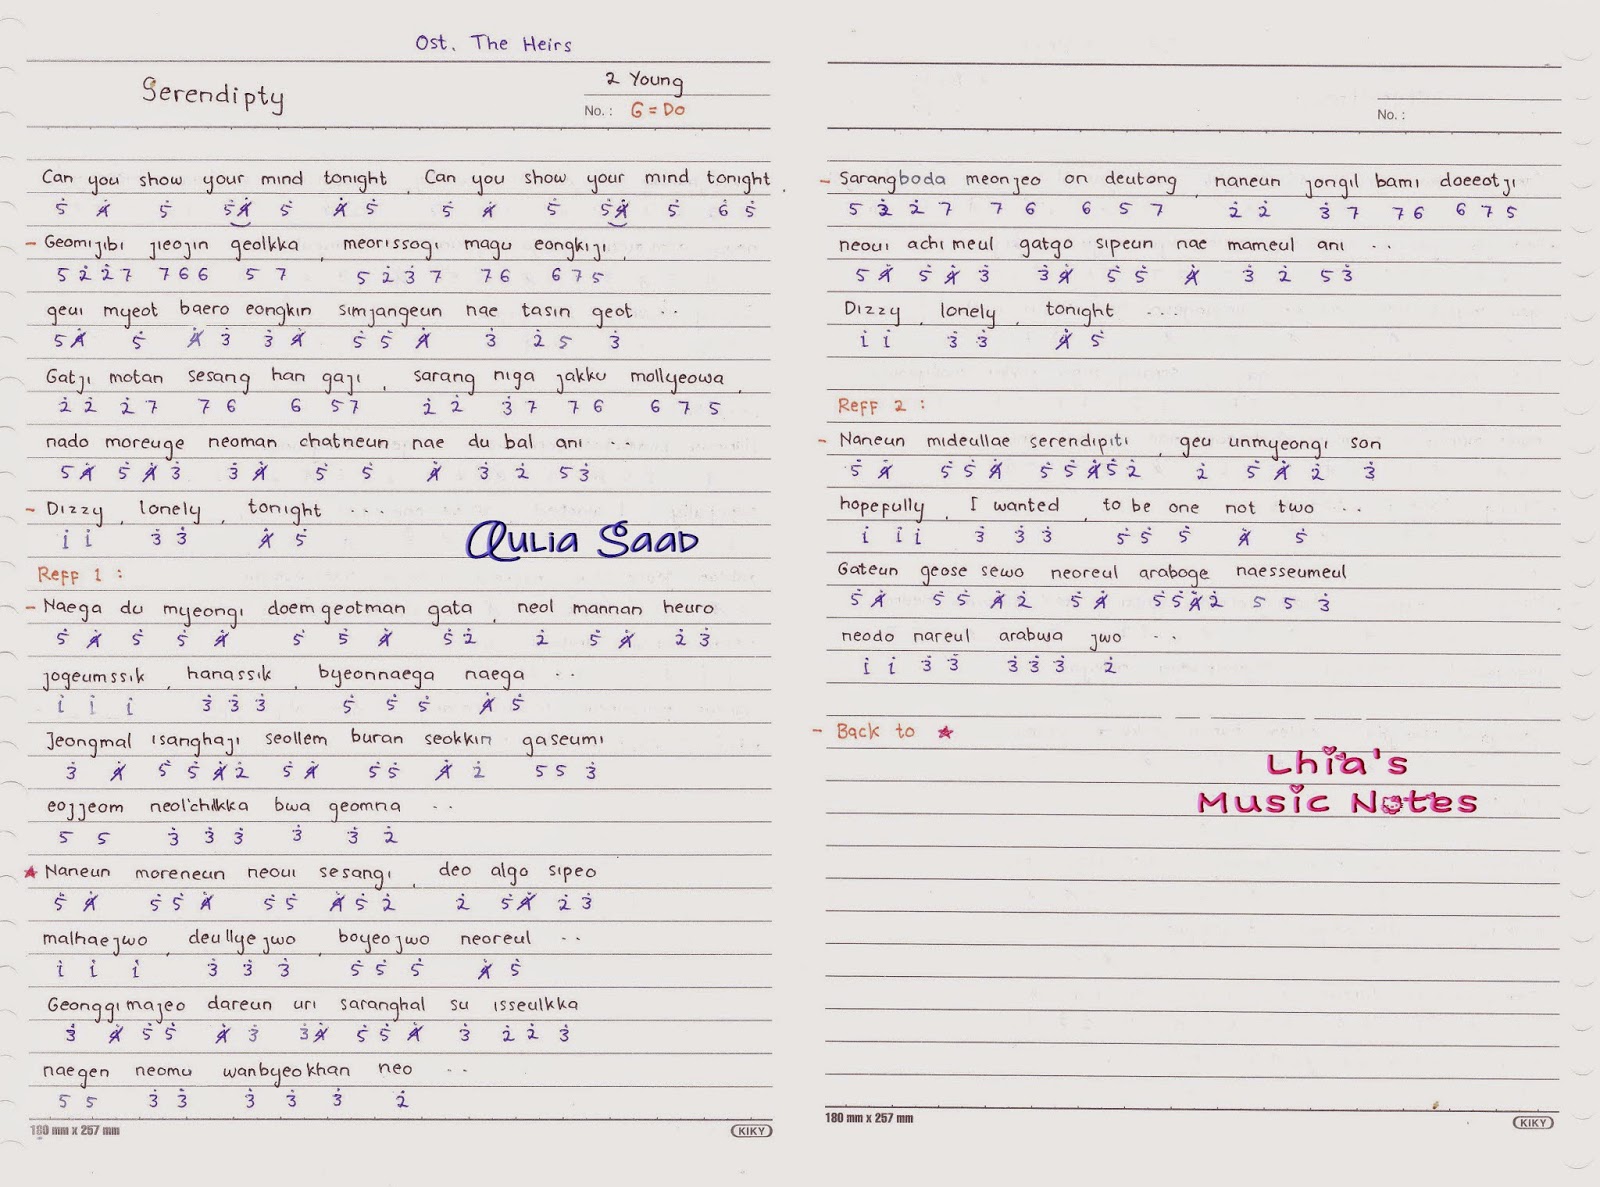 Ost. The Heirs
Serendipty
2 Young
No. : G = Do
Can you show your mind tonight , Can you show your mind tonight ,
5 4 5 54 5 4 5 5 4 5 54 5 6 5
- Geomijibi jieojin geolkka , meorissogi magu eongkiji ,
5 2 2 7 7 6 6 5 7 5 2 3 7 7 6 6 7 5
geui myeot baero eongkin simjangeun nae tasin geot . .
5 4 5 4 3 3 4 5 5 4 3 2 5 3
Gatji motan sesang han gaji , sarang niga jakku mollyeowa ,
2 2 2 7 7 6 6 5 7 2 2 3 7 7 6 6 7 5
nado moreuge neoman chatneun nae du bal ani . .
5 4 5 4 3 3 4 5 5 4 3 2 5 3
- Dizzy , lonely , tonight . . .
1 1 3 3 4 5
Aulia Saad
Reff 1 :
- Naega du myeongi doem geotman gata , neol mannan heuro
5 4 5 5 4 5 5 4 5 2 2 5 4 2 3
jogeumssik , hanassik , byeonnaega naega . .
1 1 1 3 3 3 5 5 5 4 5
Jeongmal isanghaji seollem buran seokkin gaseumi
3 4 5 5 4 2 5 4 5 5 4 2 5 5 3
eojjeom neol'chilkka bwa geomna . .
5 5 3 3 3 3 3 2
★ Naneun moreneun neoui sesangi , deo algo sipeo
5 4 5 5 4 5 5 4 5 2 2 5 4 2 3
malhaejwo , deullyejwo , boyeojwo neoreul . .
1 1 1 3 3 3 5 5 5 4 5
Geonggimajeo dareun uri saranghal su isseulkka
3 4 5 5 4 3 3 4 5 5 4 3 2 2 3
naegen neomu wanbyeokhan neo . .
5 5 3 3 3 3 3 2
180 mm x 257 mm KIKY
No. :
- Sarangboda meonjeo on deutong , naneun jongil bami doeeotji
5 2 2 7 7 6 6 5 7 2 2 3 7 7 6 6 7 5
neoui achimeul gatgo sipeun nae mameul ani . .
5 4 5 4 3 3 4 5 5 4 3 2 5 3
Dizzy , lonely , tonight . . . .
1 1 3 3 4 5
Reff 2 :
- Naneun mideullae serendipiti , geu unmyeongi son
5 4 5 5 4 5 5 4 5 2 2 5 4 2 3
hopefully , I wanted , to be one not two . .
1 1 1 3 3 3 5 5 5 4 5
Gateun geose sewo neoreul araboge naesseumeul
5 4 5 5 4 2 5 4 5 5 4 2 5 5 3
neodo nareul arabwa jwo . .
1 1 3 3 3 3 3 2
- Back to ★
Lhia's
Music Notes
180 mm x 257 mm KIKY